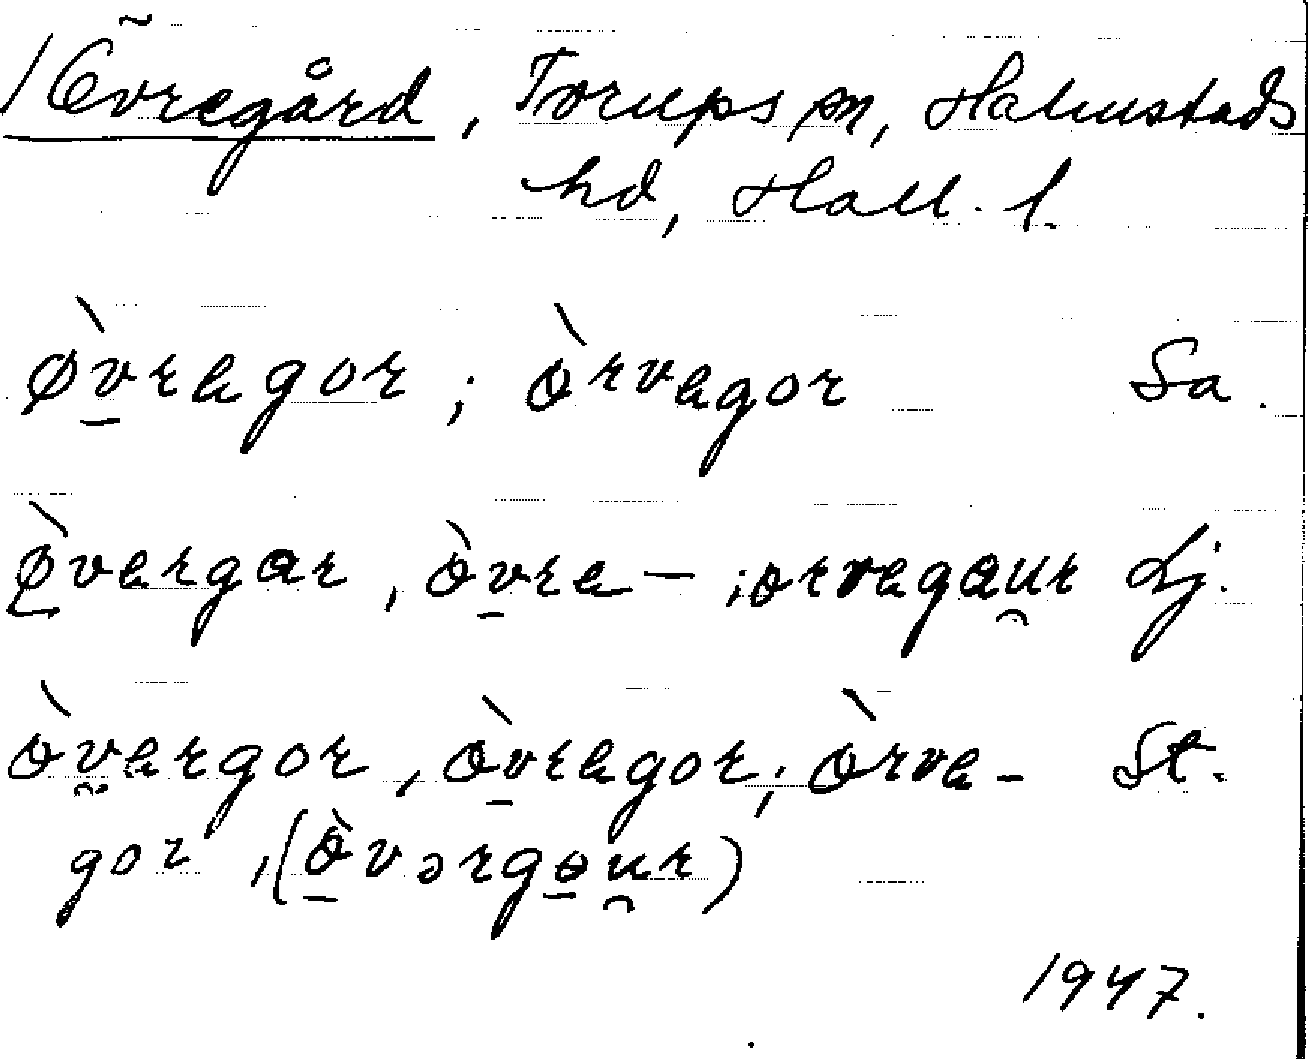 /Övregård, Torups sn, Halmstads
hd, Hall. l.
ø̀v̠ragor ; òrvagor Sa.
ø̠̀vargar , òv̠ra— ; orvagau̯r Lj.
òvargor , òv̠ragor ; òrva- St.
gor , (ò̠vərgɵ̠u̯r)
1947.